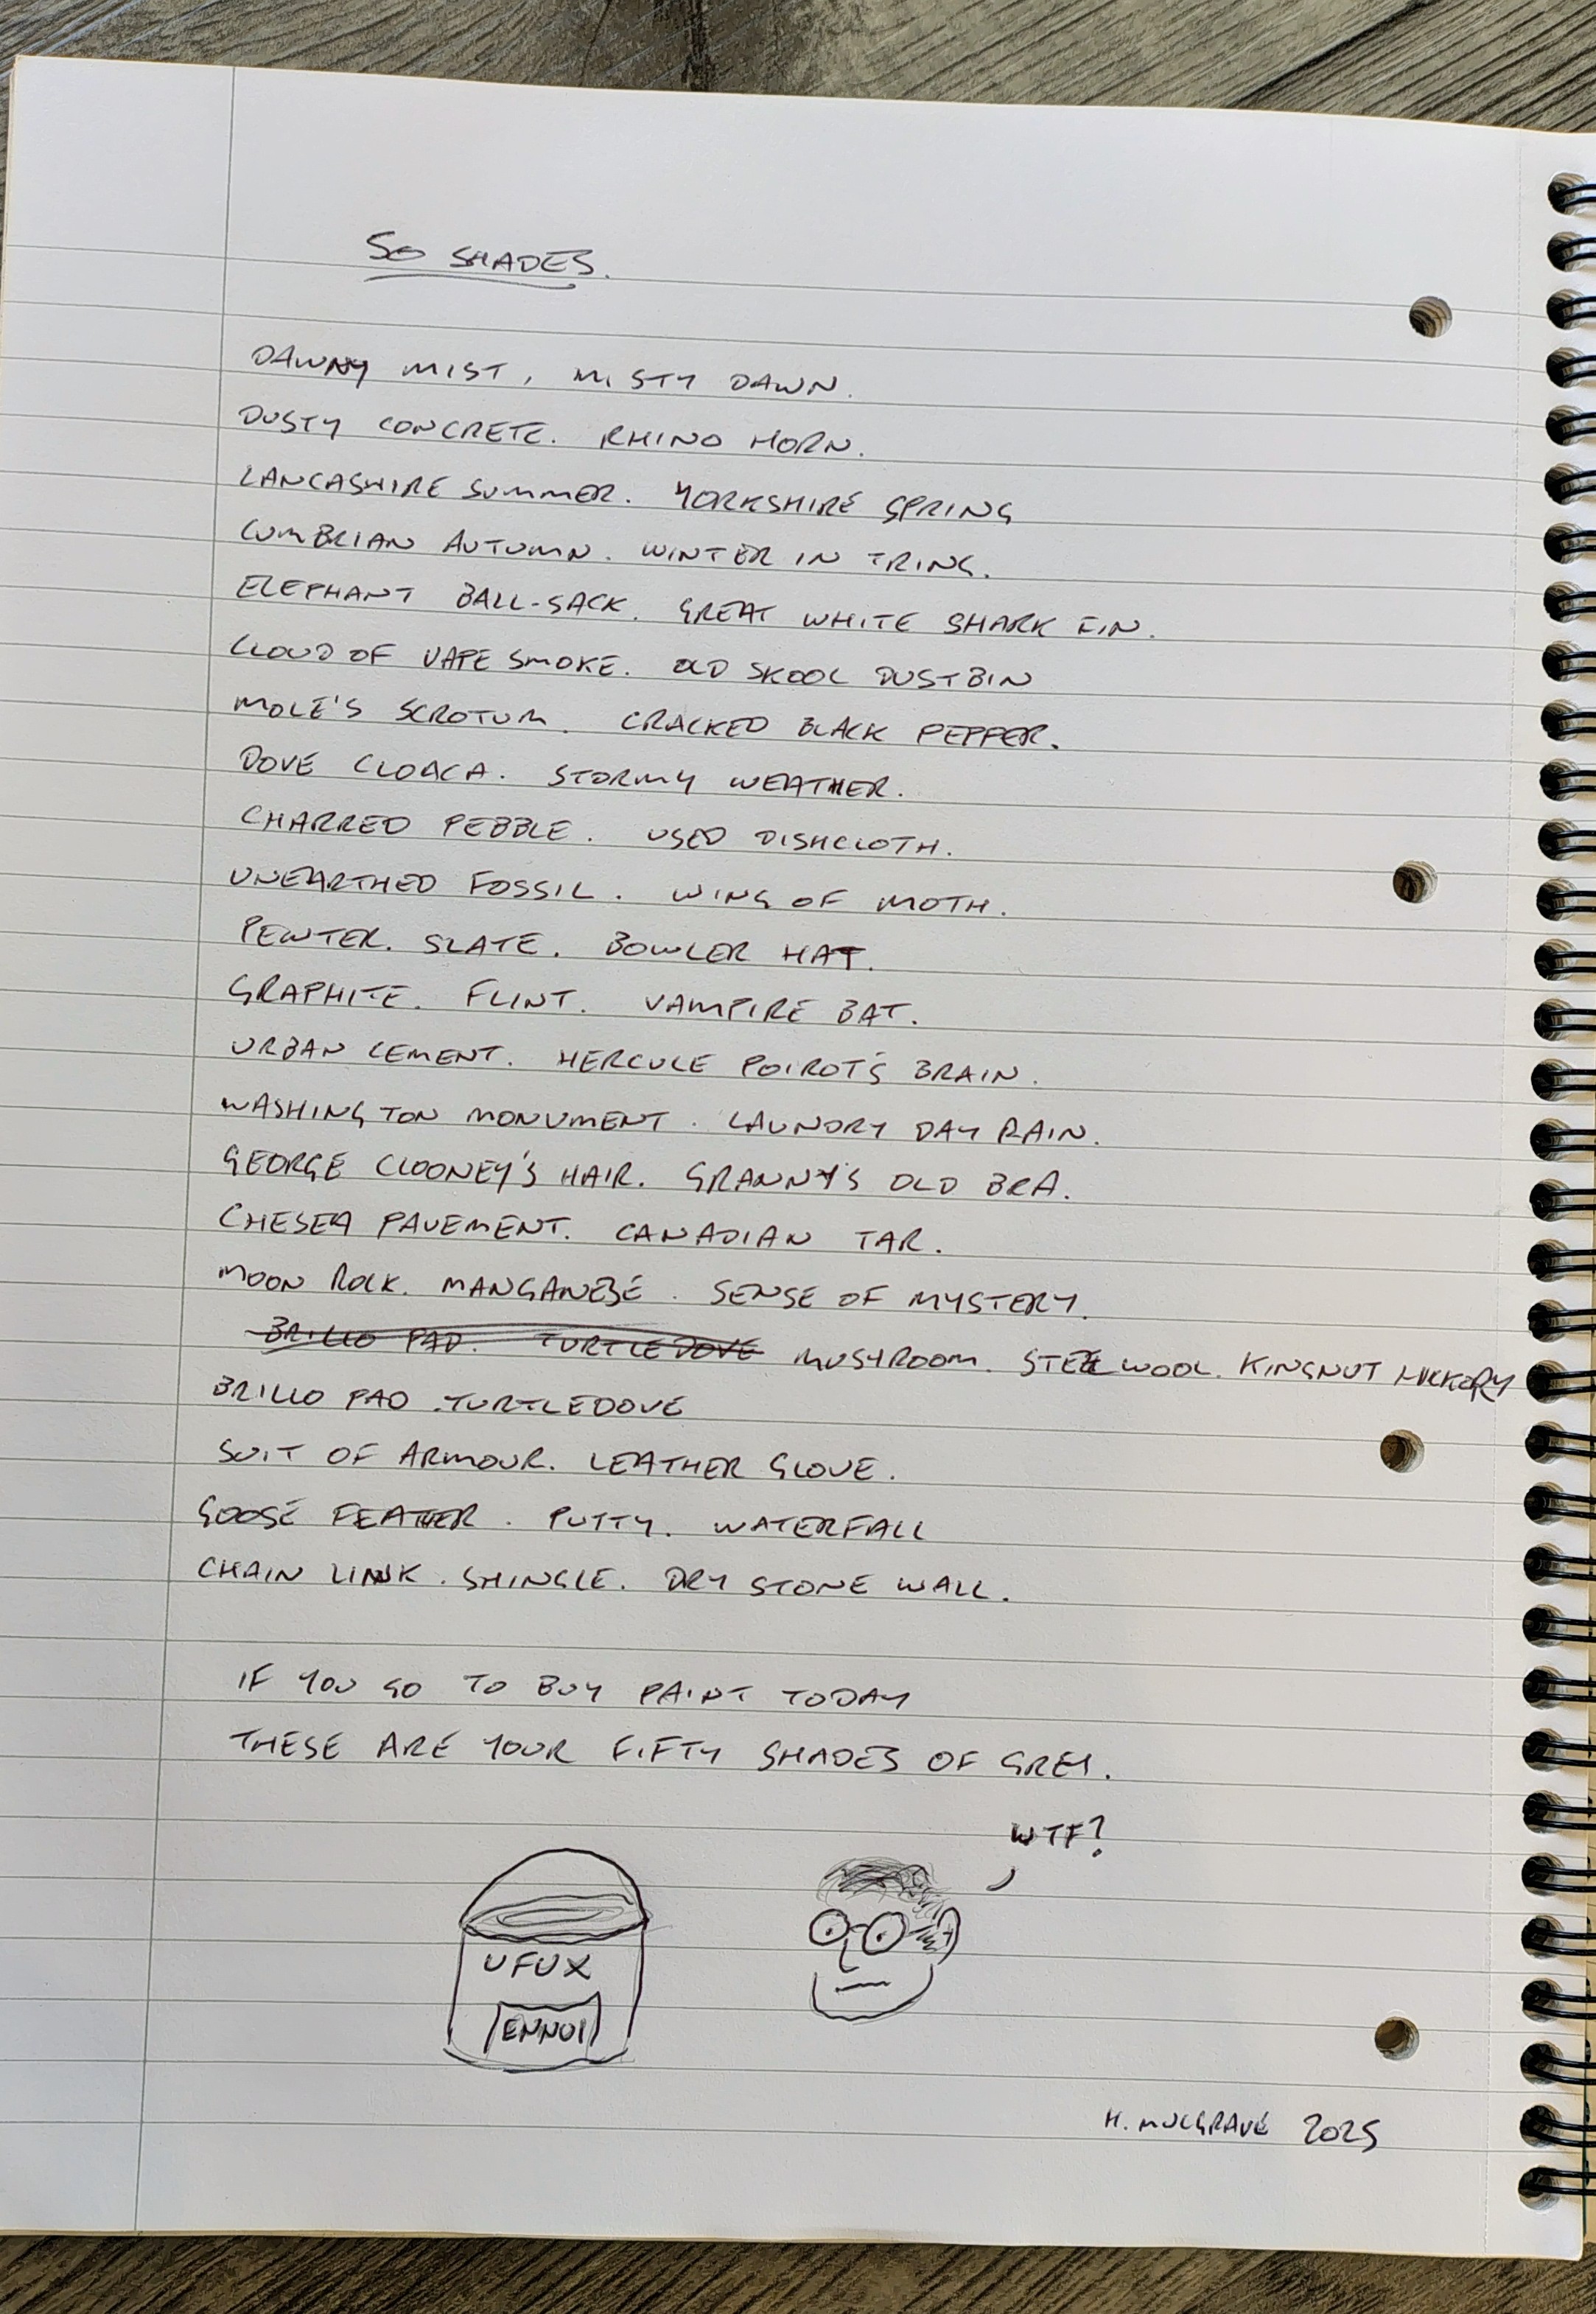 50 SHADES.
DAWNY MIST, MISTY DAWN.
DUSTY CONCRETE. RHINO HORN.
LANCASHIRE SUMMER. YORKSHIRE SPRING
CUMBRIAN AUTUMN. WINTER IN TRING.
ELEPHANT BALL-SACK. GREAT WHITE SHARK FIN.
CLOUD OF VAPE SMOKE. OLD SKOOL DUSTBIN
MOLE'S SCROTUM. CRACKED BLACK PEPPER.
DOVE CLOACA. STORMY WEATHER.
CHARRED PEBBLE. USED DISHCLOTH.
UNEARTHED FOSSIL. WING OF MOTH.
PEWTER. SLATE. BOWLER HAT.
GRAPHITE. FLINT. VAMPIRE BAT.
URBAN CEMENT. HERCULE POIROT'S BRAIN.
WASHINGTON MONUMENT. LAUNDRY DAY RAIN.
GEORGE CLOONEY'S HAIR. GRANNY'S OLD BRA.
CHESEA PAVEMENT. CANADIAN TAR.
MOON ROCK. MANGANESE. SENSE OF MYSTERY.
BRILLO PAD. TURTLEDOVE MUSHROOM. STEEL WOOL. KINGNUT HICKORY
BRILLO PAD. TURTLEDOVE
SUIT OF ARMOUR. LEATHER GLOVE.
GOOSE FEATHER. PUTTY. WATERFALL
CHAIN LINK. SHINGLE. DRY STONE WALL.
IF YOU GO TO BUY PAINT TODAY
THESE ARE YOUR FIFTY SHADES OF GREY.
WTF?
UFUX
ENNUI
H. MULGRAVE 2025